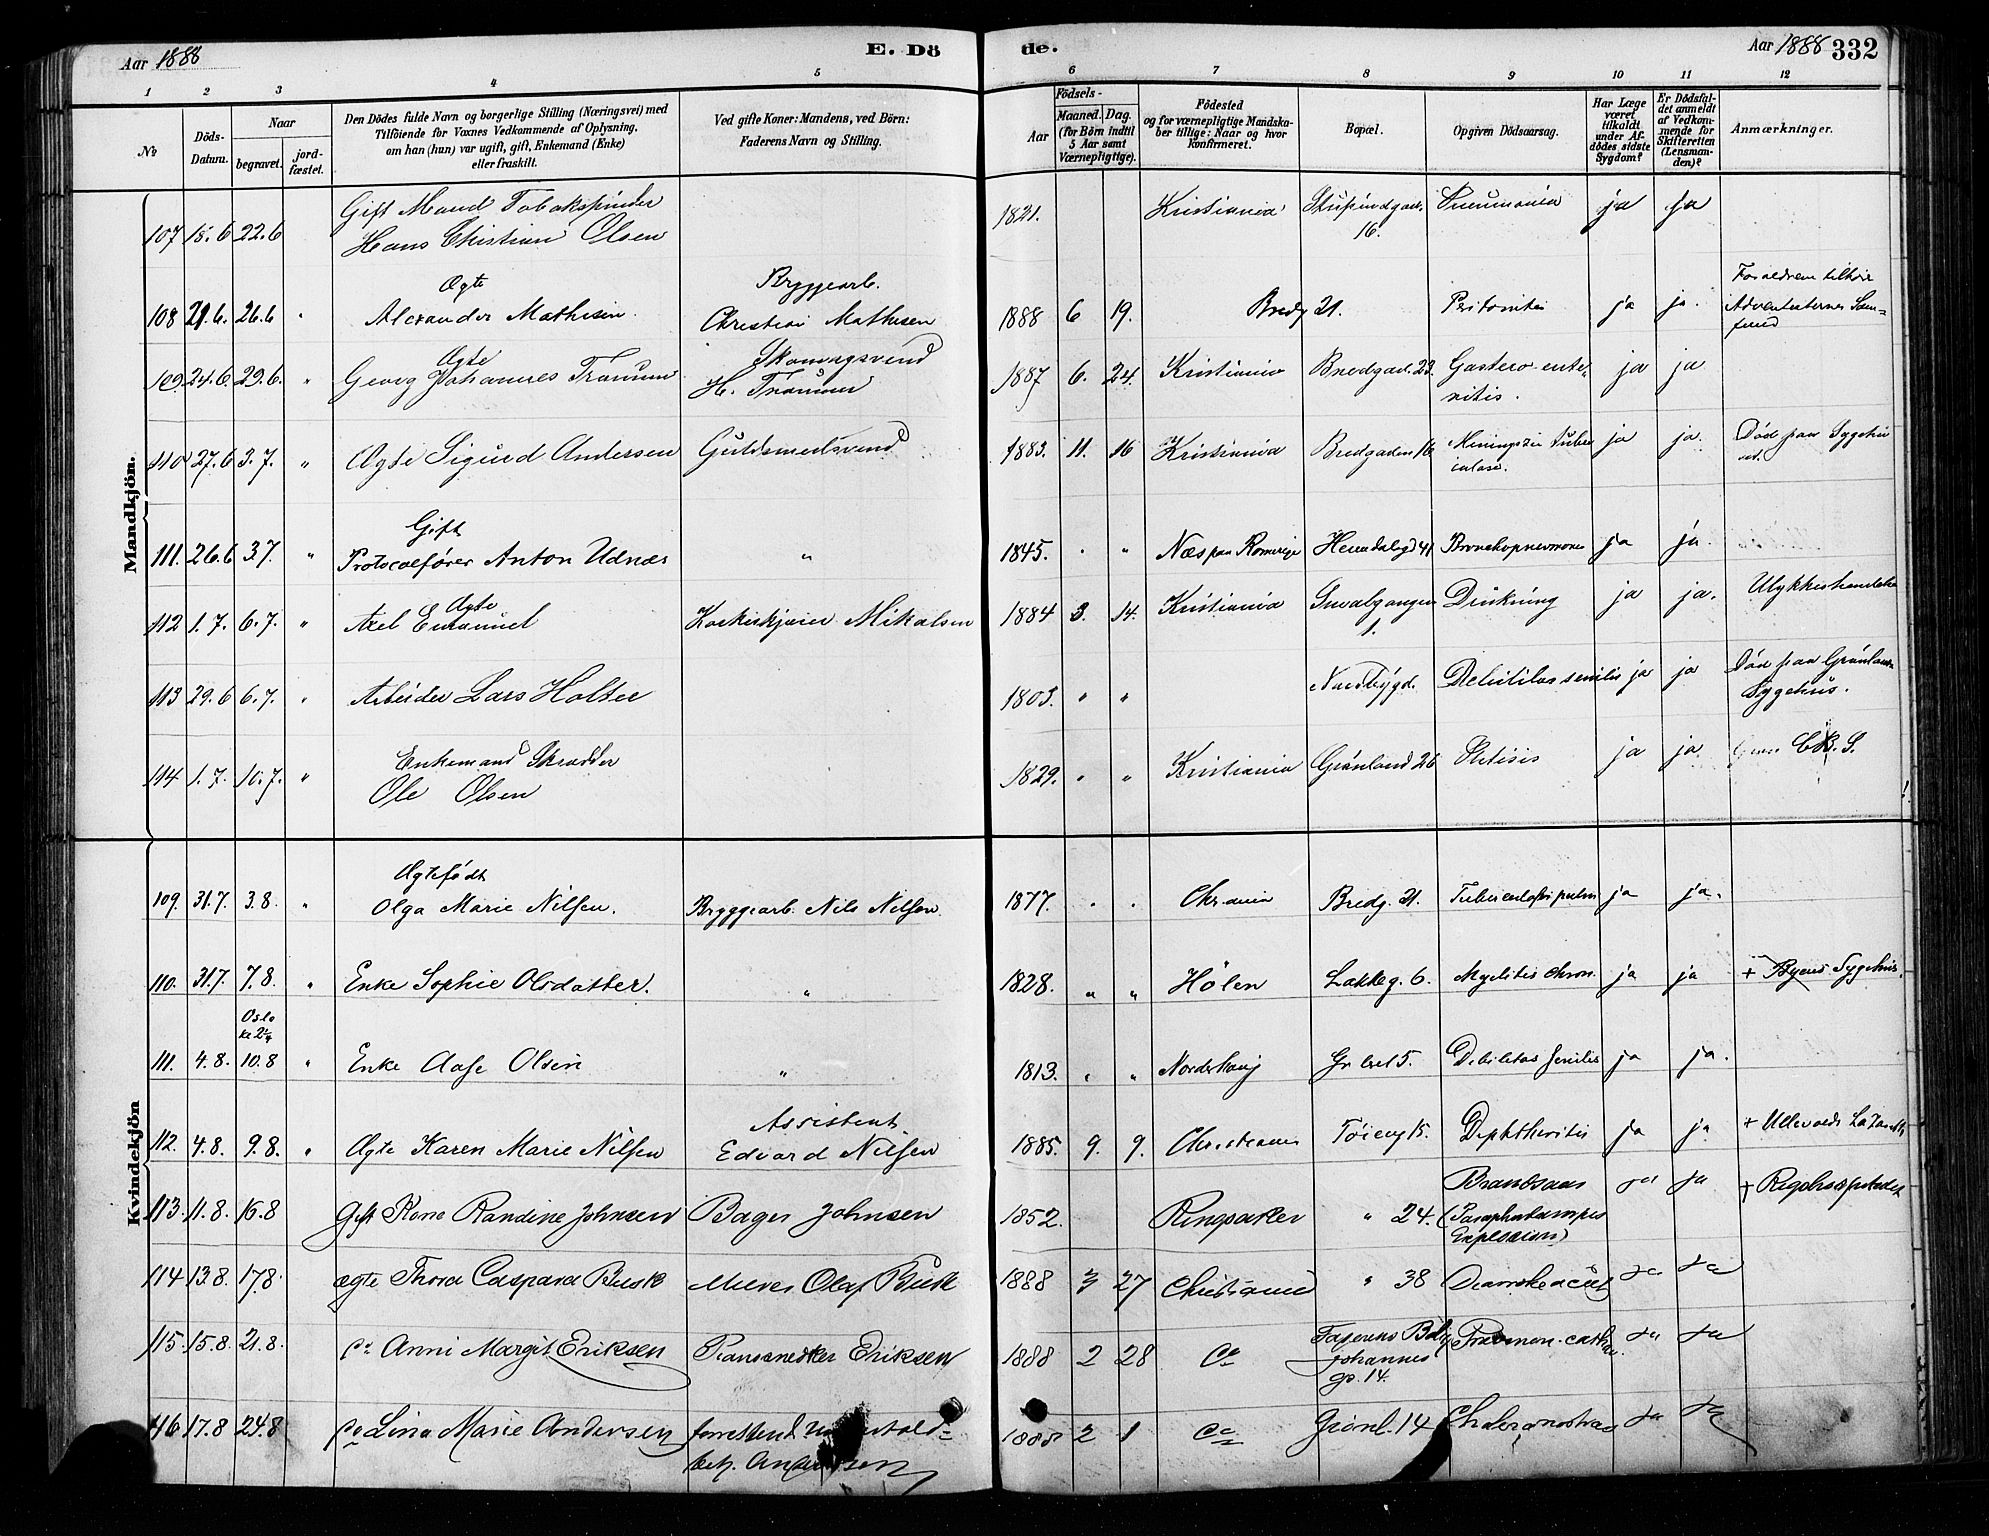 Aar 1888
E. Dö
de.
Aar 1888
332
1 2 3 4 5 6 7 8 9 10 11 12
№
Döds-
Datum.
Naar
begravet.
jord-
fæstet.
Den Dödes fulde Navn og borgerlige Stilling (Næringsvei) med
Tilföiende for Voxnes Vedkommende af Oplysning,
om han (hun) var ugift, gift, Enkemand (Enke)
eller fraskilt.
Ved gifte Koner: Mandens, ved Börn:
Faderens Navn og Stilling.
Födsels-
Aar
Maaned. Dag.
(for Börn indtil
5 Aar samt
Værnepligtige).
Födested
og for værnepligtige Mandska-
ber tillige: Naar og hvor
konfirmeret.
Bopæl.
Opgiven Dödsaarsag.
Har Læge
været
tilkaldt
under Af-
dödes sidste
Sygdom?
Er Dödsfal-
det anmeldt
af Vedkom-
mende for
Skifteretten
(Lensman-
den)?
Anmærkninger.
Mandkjön.
Gift Mand Tobakspinder
107 18.6 22.6 Hans Christian Olsen 1821. Kristiania 16. Pneumonia ja ja
Ægte Bryggearb.
108 21.6. 26.6 " Alexander Mathisen. Christian Mathisen 1888 6 19. Bredg 21. Peritonitis ja ja.
Forældrene tilhøre
Adventisternes Sam-
fund
Ægte Skomagsvend
109 24.6. 29.6. " Georg Johannes H. 1887 6. 24. Kristiania Bredgad. 23. Gastero-ente-
ritis. ja ja
110 27.6 3.7. " Ægte Sigurd Andersen Guldsmedsvend 1883. 11. 16 Kristiania Bredgaden 16 ja ja. Død paa Sygehu
set.
Gift
111. 26.6 3.7. " Protocolfører Anton Udnæs " 1845. " " Næs paa Romerige 41 ja ja.
Ægte
112 1.7. 6.7. " Axel Emanuel Mikalsen 1884 3. 14. Kristiania 1. Drukning ja ja.
113 29.6 6.7. " Arbeider Lars Holter 1803. " " Nordbygd. Debilitas senilis ja ja Død paa Grønlands
Sygehus.
Enkemand Skrædder
114 1.7. 10.7. " Ole Olsen 1829. " " Kristiania Grønland 26 Phtisis ja ja.
Kvindekjön
Ægtefødt
109. 31.7. 3.8. " Olga Marie Nilsen. Bryggearb. Nils Nilsen. 1877. " " Chr.ania Bredg. 21. Tuberculosis pulm ja ja.
110. 31.7 7.8. " Enke Sophie Olsdatter. " 1828. " " Hølen Lakkeg. 6. Myelitis chron. ja ja + Byens Sygehus.
Oslo
111. 4.8. 10.8 " Enke Aase Olsen " 1813. " " Norderhaug Gr. leret 5. Debilitas senilis ja ja.
Assistent
112. 4.8. 9.8. " Ægte Karen Marie Nilsen Edvard Nilsen 1885. 9. 9. Christiania Tøieng 15. Diphtheritis ja ja + Ullevold Lazareth
113. 11.8. 16.8 Gift Kone Randine Johnsen Bager Johnsen 1852. Ringsaker " 24. Brandsaar
(Paraphinlampes
Explosion) ja ja + Rigshospitalet
114 13.8. 17.8. ægte Thora Caspara Busk Murer Olaf Busk 1888 3 27 Christiania " 38 ja ja
115. 15.8. 21.8. Do Anni Margit Eriksen Eriksen 1888 2 28 Do
Johannes
gd. 14. ja ja
116 17.8 24.8 Do Lina Marie Andersen forrettend.
betj. Andersen 1888 2 1 Do Grønl. 14 ja ja